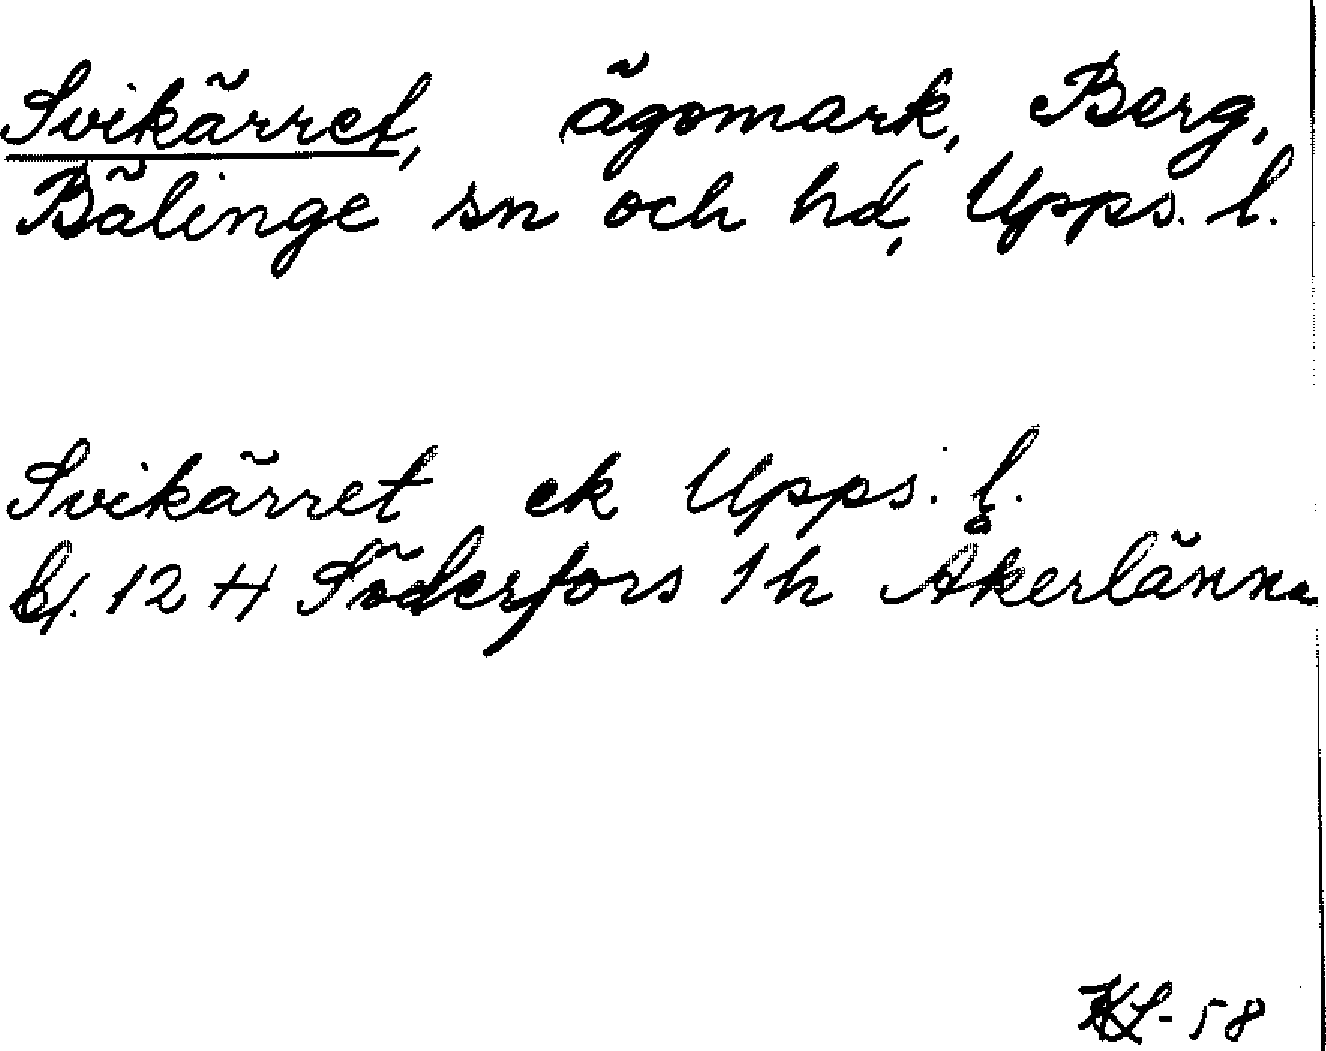 Svikärret, ägomark, Berg,
Bälinge sn och hd, Upps. l.
Svikärret ek Upps. l.
bl. 12 H Söderfors 1 h Åkerlänna
KL-58